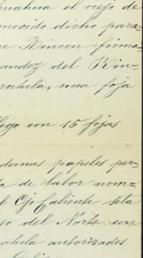 huahua el viejo de
onocido dicho para-
re Rincon firma-
andez del Rin-
ratada, una foja
lego con 15 fojas
demas papeles per-
ta de labor nom-
l Ojo Caliente sita
so del Norte con
ratada autorizados